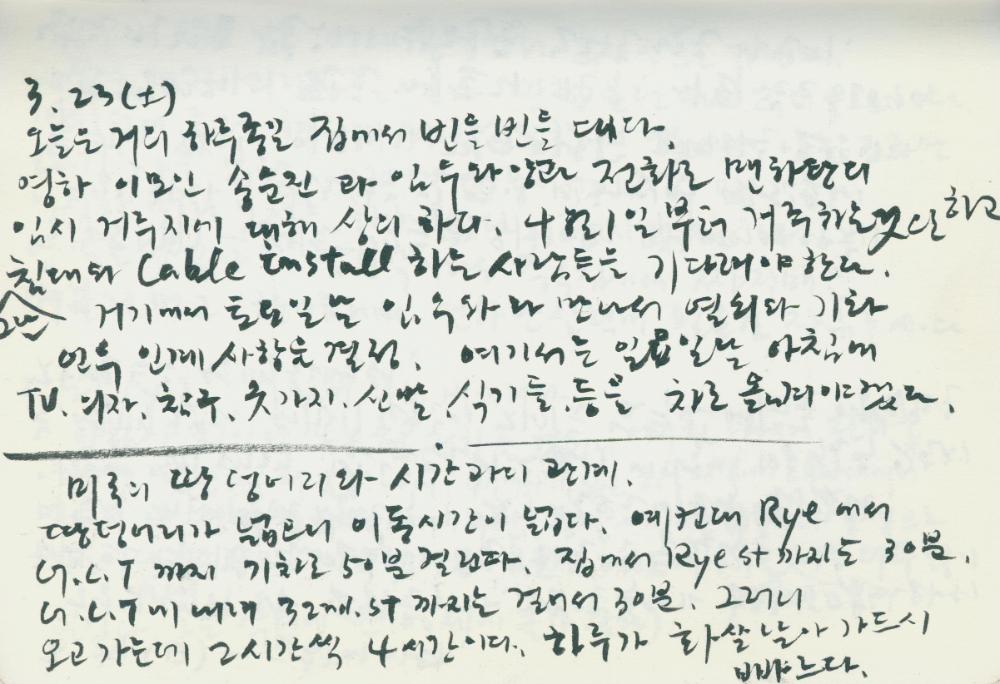 3. 23(土)
오늘은 거의 하루종일 집에서 빈들빈들 대다.
영하 이모인 송순진과 임 전화로 맨하탄의
임시 거주지에 대해 상의하다. 4월 1일부터 거주하고
침대와 Cable install 하는 사람들을 기다려야한다.
그난 거기에서 토요일날 만나서 열쇠와 기타
업무 인계 사항을 결정. 여기서는 일요일날 아침에
TV, 의자, 침구, 옷가지, 신발, 식기들, 등을 차로 겠다.
미국의 땅덩어리와 시간과의 관계.
땅덩어리가 넓고니 이동시간이 넓다. 예컨대 Rye 에서
G.C.T 까지 기차로 50분 걸린다. 집에서 Rye st 까지도 30분.
G.C.T에 내려 32nd. st 까지는 걸어서 30분. 그러니
오고 가는데 2시간씩 4시간이다. 하루가 화살 날아 가드시
빠르다.